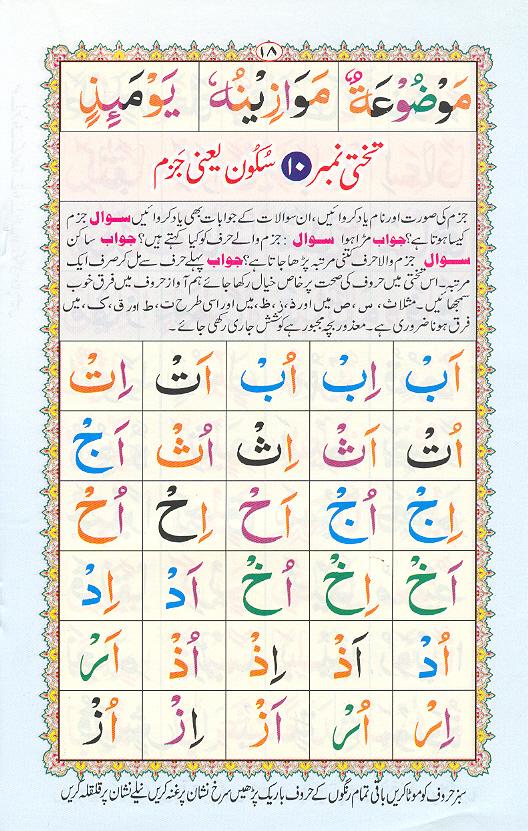 ۱۸
مَوْضُوْعَةٌ مَوَازِيْنُهٗ يَوْمَئِذٍ
تختی نمبر ۱۰ سُکُون یعنی جَزم
جزم کی صورت اور نام یاد کروائیں، ان سوالات کے جوابات بھی یاد کروائیں سوال جزم
کیسا ہوتا ہے؟ جواب مڑا ہوا سوال : جزم والے حرف کو کیا کہتے ہیں؟ جواب ساکن
سوال جزم والا حرف کتنی مرتبہ پڑھا جاتا ہے؟ جواب پہلے حرف سے مل کر صرف ایک
مرتبہ۔ اس تختی میں حروف کی صحت پر خاص خیال رکھا جائے ہم آواز حروف میں فرق خوب
سمجھائیں۔ مثلا ث، س، ص میں اور ذ، ز، ظ، میں اور اسی طرح ت، ط اور ق، ک، میں
فرق ہونا ضروری ہے۔ معذور بچہ مجبور ہے کوشش جاری رکھی جائے۔
اَبْ اِبْ اُبْ اَتْ اِتْ
اُتْ اَثْ اِثْ اُثْ اَجْ
اِجْ اُجْ اَحْ اِحْ اُحْ
اَخْ اِخْ اُخْ اَدْ اِدْ
اُدْ اَذْ اِذْ اُذْ اَرْ
اِرْ اُرْ اَزْ اِزْ اُزْ
سبز حروف کو موٹا کریں باقی تمام رنگوں کے حروف باریک پڑھیں سرخ نشان پر غنہ کریں نیلے نشان پر قلقلہ کریں